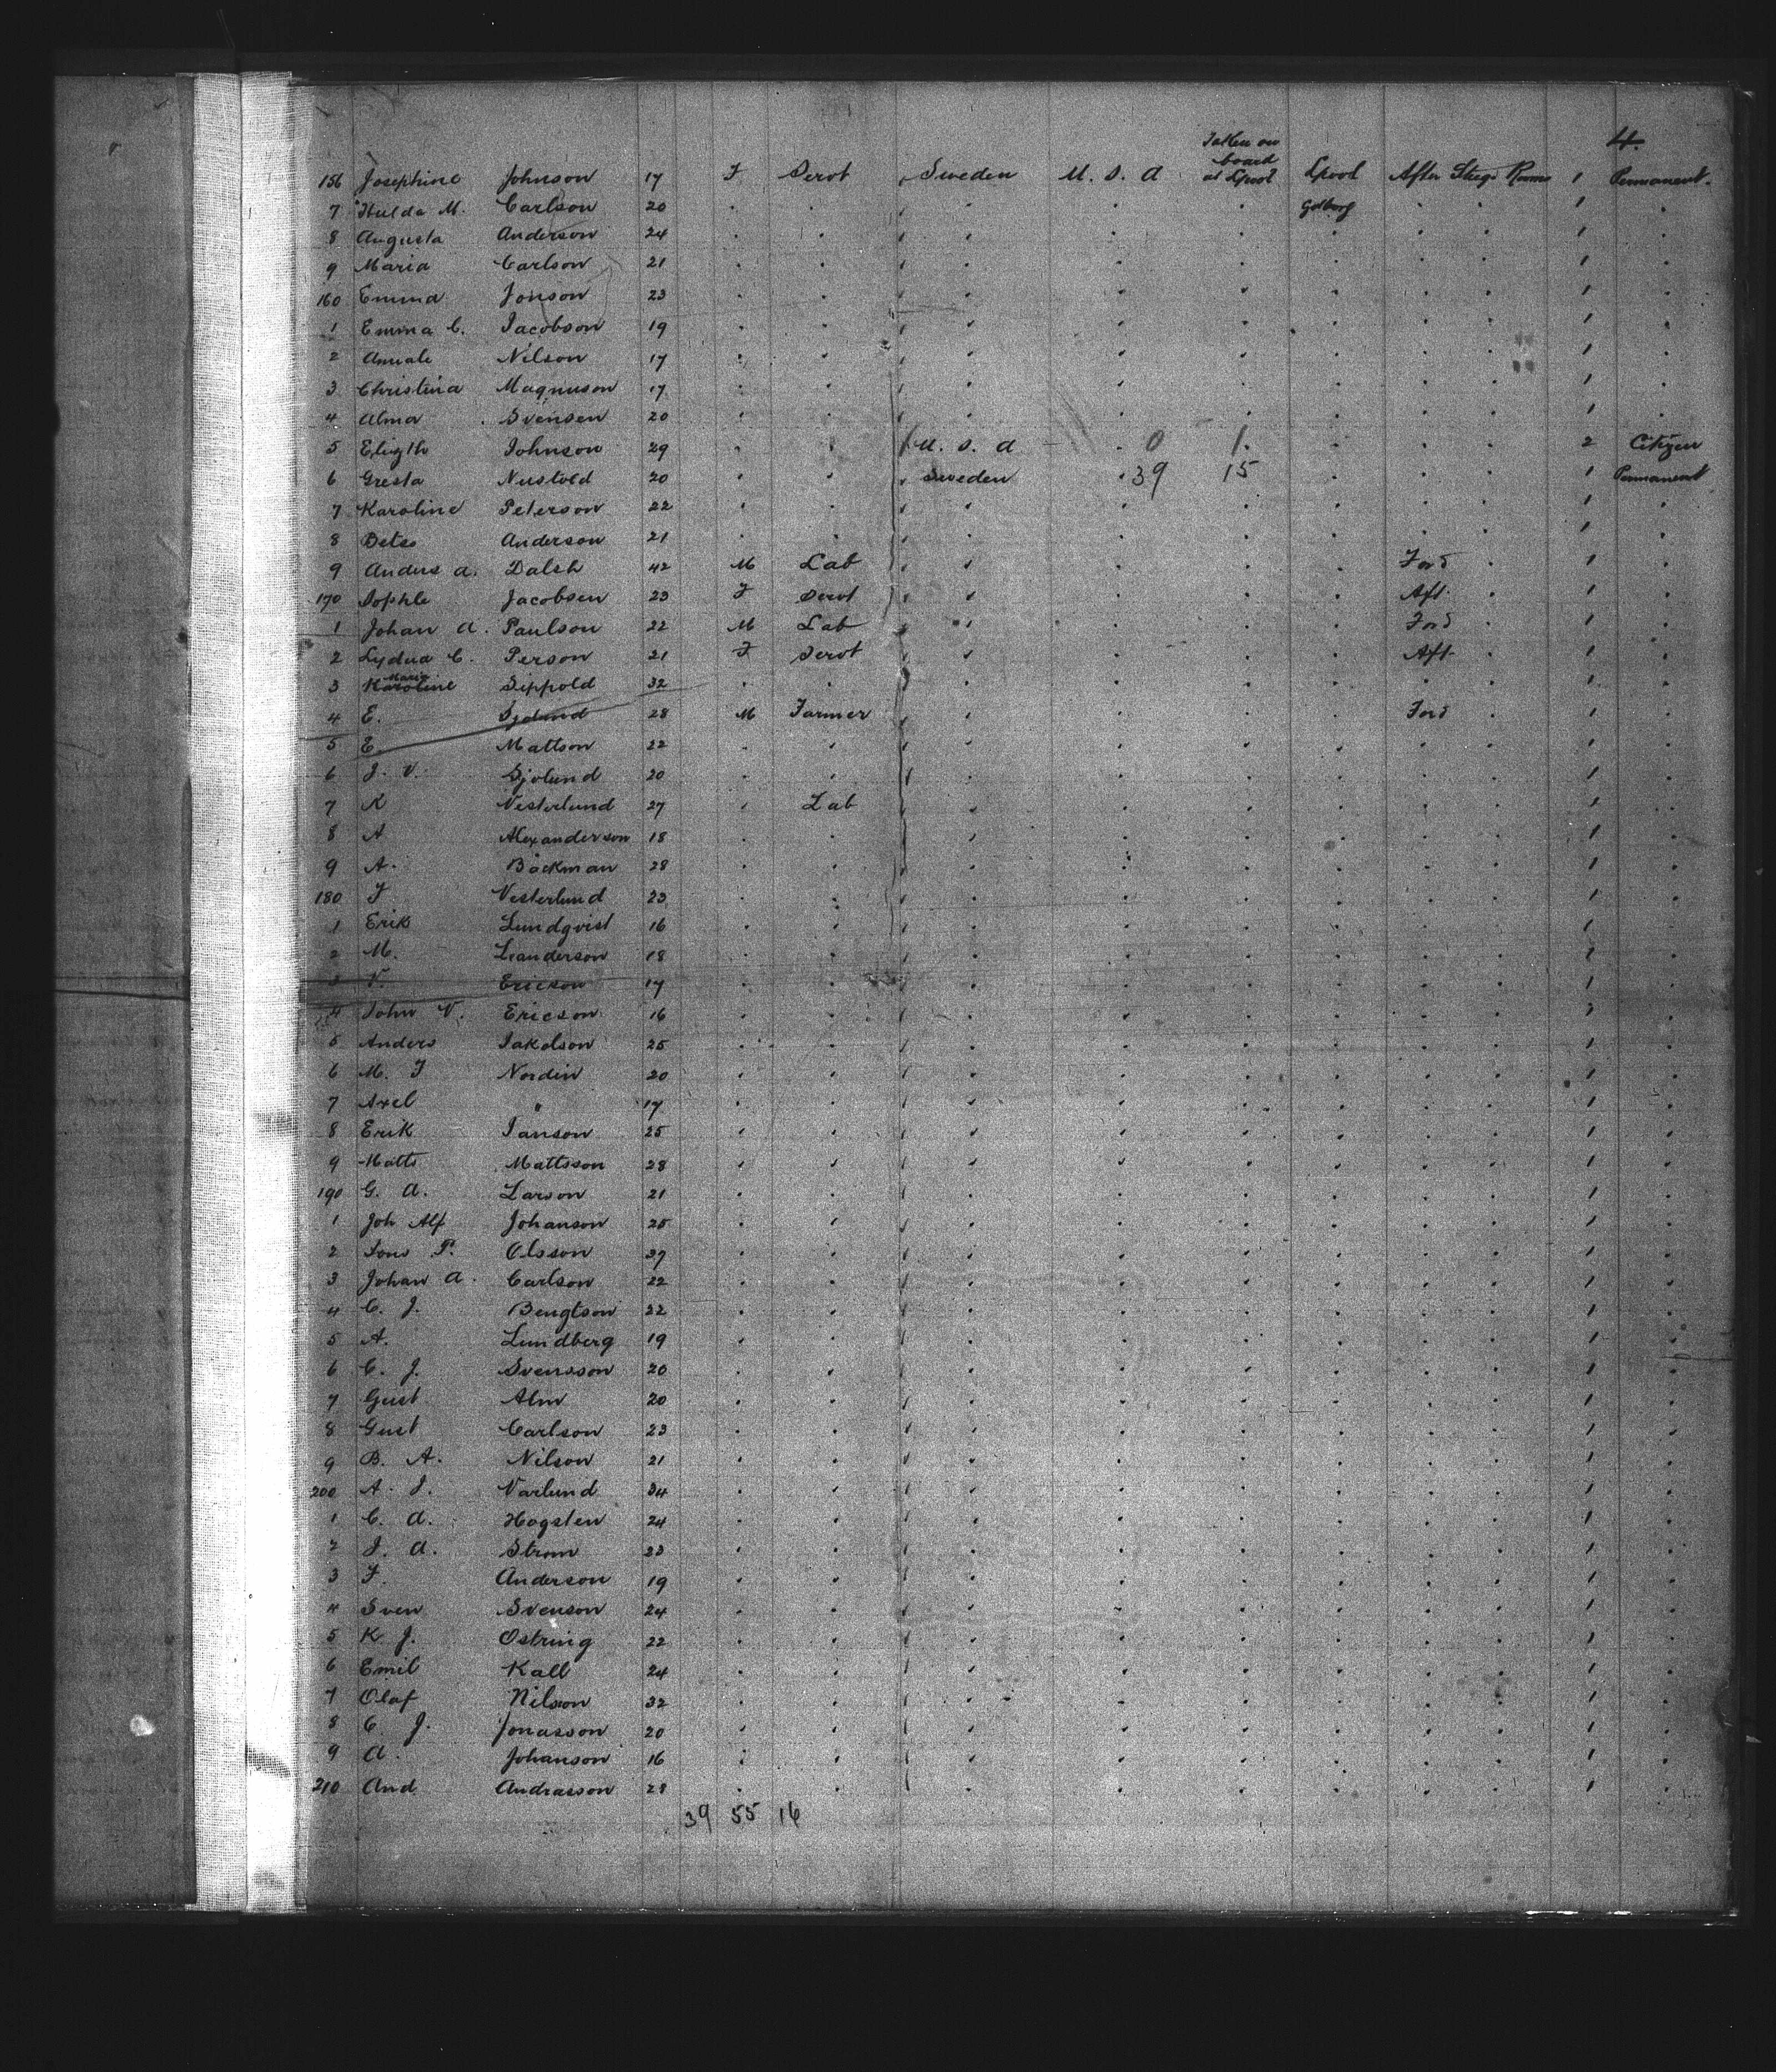 4.
Taken on
board
156 Josephine Johnson 17 F Servt Sweden U. S. A at Lpool Lpool After Steege Rooms 1 Permanent.
7 Hulda M. Carlson 20 " " " " " " Gotborg " " 1 "
8 Augusta Anderson 24 " " " " " " " " " 1 "
9 Maria Carlson 21 " " " " " " " " " 1 "
160 Emma Jonson 23 " " " " " " " " " 1 "
1 Emma C. Jacobson 19 " " " " " " " " " 1 "
2 Amale Nilson 17 " " " " " " " " " 1 "
3 Christina Magnuson 17 " " " " " " " " " 1 "
4 Alma Svensen 20 " " " " " " " " " 1 "
5 Johnson 29 " " U. S. A " 0 1 " " " 2 Citizen
6 Gresta 20 " " Sweden " 39 15 " " " 1 Permanent
7 Karoline Peterson 22 " " " " " " " " 1 "
8 Anderson 21 " " " " " " " " 1 "
9 Anders A. 42 M Lab " " " " Ford " 1 "
170 Sophle Jacobsen 23 F Servt " " " " Aft. " 1 "
1 Johan A. Paulson 22 M Lab " " " " Ford " 1 "
2 Lydia C. Person 21 F Servt " " " " Aft. " 1 "
Maria
3 Karoline Sippold 32 " " " " " " " " 1 "
4 E. Sjolund 28 M Farmer " " " " Ford " 1 "
5 E. Mattson 22 " " " " " " " " 1 "
6 J. V. Sjolund 20 " " " " " " " " 1 "
7 K Vesterlund 27 " Lab " " " " " " 1 "
8 A Alexanderson 18 " " " " " " " " 1 "
9 A. Bäckman 28 " " " " " " " " 1 "
180 F Vesterlund 23 " " " " " " " " 1 "
1 Erik Lundqvist 16 " " " " " " " " 1 "
2 M. Leanderson 18 " " " " " " " " 1 "
3 V. Erickson 17 " " " " " " " " 1 "
4 John V. Ericson 16 " " " " " " " " 1 "
5 Anders Jakolson 25 " " " " " " " " 1 "
6 M. F Nordin 20 " " " " " " " " 1 "
7 Axel " 17 " " " " " " " " 1 "
8 Erik Janson 25 " " " " " " " " 1 "
9 Matts Mattsson 28 " " " " " " " " 1 "
190 G. A. Larson 21 " " " " " " " " 1 "
1 Joh Alf Johanson 25 " " " " " " " " 1 "
2 P. Olsson 37 " " " " " " " " 1 "
3 Johan A. Carlson 22 " " " " " " " " 1 "
4 C. J. Bengtson 22 " " " " " " " " 1 "
5 A. Lundberg 19 " " " " " " " " 1 "
6 C. J. Svensson 20 " " " " " " " " 1 "
7 Gust Alm 20 " " " " " " " " 1 "
8 Gust Carlson 23 " " " " " " " " 1 "
9 B. A. Nilson 21 " " " " " " " " 1 "
200 A. J. Varlund 34 " " " " " " " " 1 "
1 C. A. Hogsten 24 " " " " " " " " 1 "
2 J. A. Strom 23 " " " " " " " " 1 "
3 F. Anderson 19 " " " " " " " " 1 "
4 Sven Svenson 24 " " " " " " " " 1 "
5 K J. Ostring 22 " " " " " " " " 1 "
6 Emil Kall 24 " " " " " " " " 1 "
7 Olaf Nilson 32 " " " " " " " " 1 "
8 C. J. Jonasson 20 " " " " " " " " 1 "
9 A. Johanson 16 " " " " " " " " 1 "
210 And Andrasson 28 " " " " " " " " 1 "
39 55 16